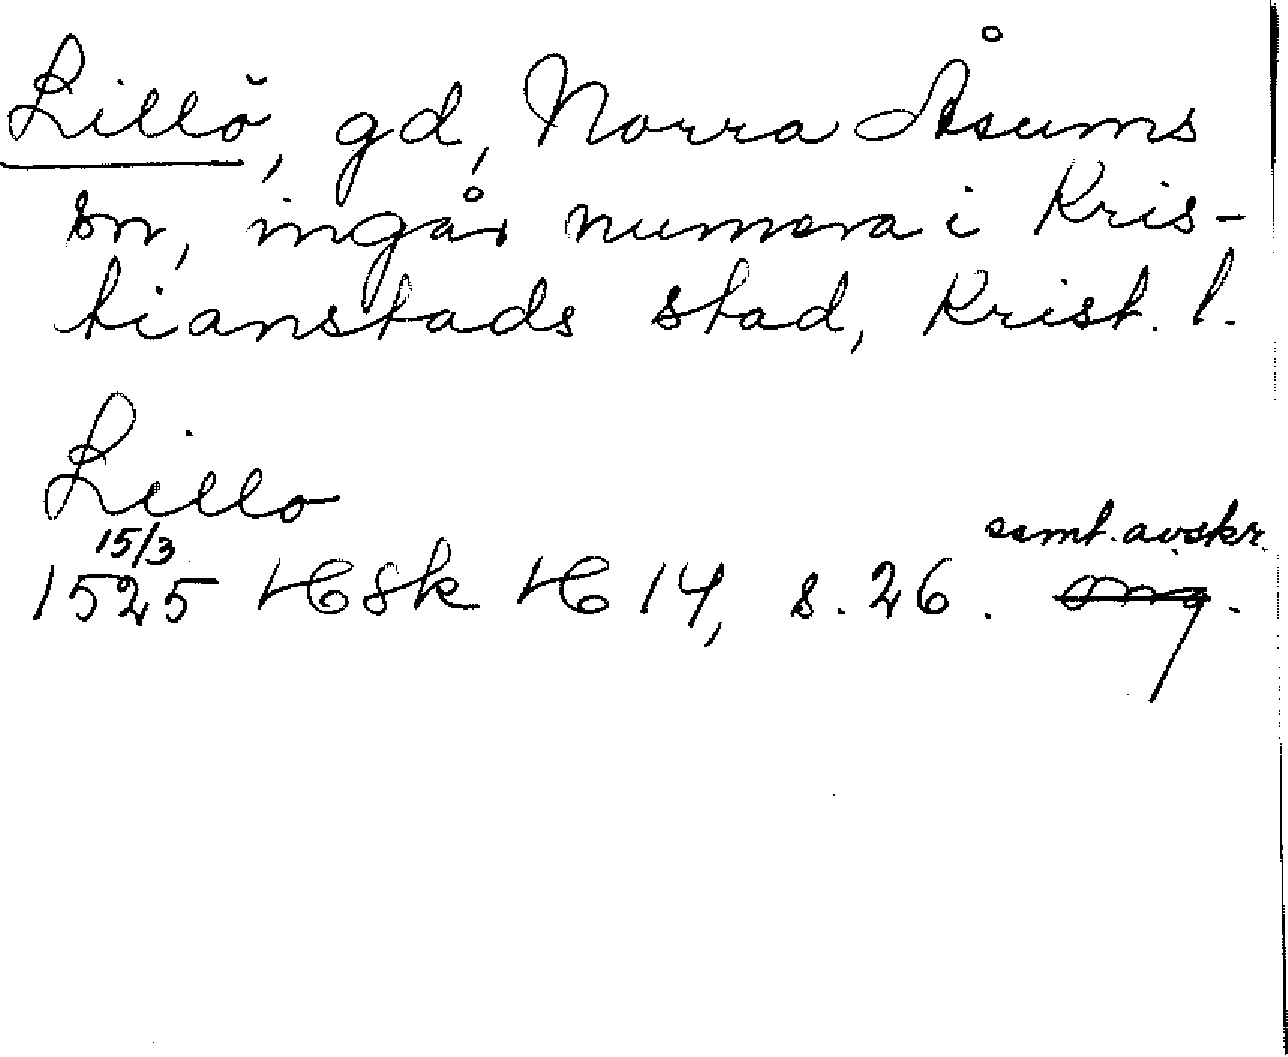 Lillö, gd, Norra Åsums
sn, ingår numera i Kris-
tianstads stad, Krist. l.
Lillo
15/3
samt. avskr.
1525 HSk H 14, s. 26.